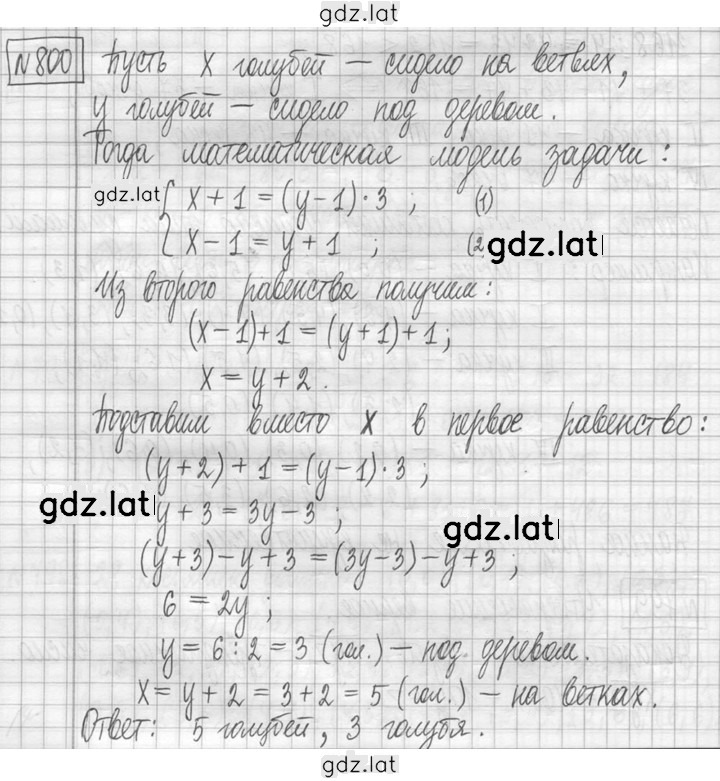 gdz.lat
N 800 Пусть x голубей – сидело на ветвях,
y голубей – сидело под деревом.
Тогда математическая модель задачи:
gdz.lat { x + 1 = (y - 1) · 3 ; (1)
x - 1 = y + 1 ; (2 gdz.lat
Из второго равенства получим:
(x - 1) + 1 = (y + 1) + 1 ;
x = y + 2 .
Подставим вместо x в первое равенство:
(y + 2) + 1 = (y - 1) · 3 ;
gdz.lat y + 3 = 3y - 3 ;
gdz.lat
(y + 3) - y + 3 = (3y - 3) - y + 3 ;
6 = 2y ;
y = 6 : 2 = 3 (гол.) – под деревом.
x = y + 2 = 3 + 2 = 5 (гол.) – на ветках.
Ответ: 5 голубей, 3 голубя.
gdz.lat